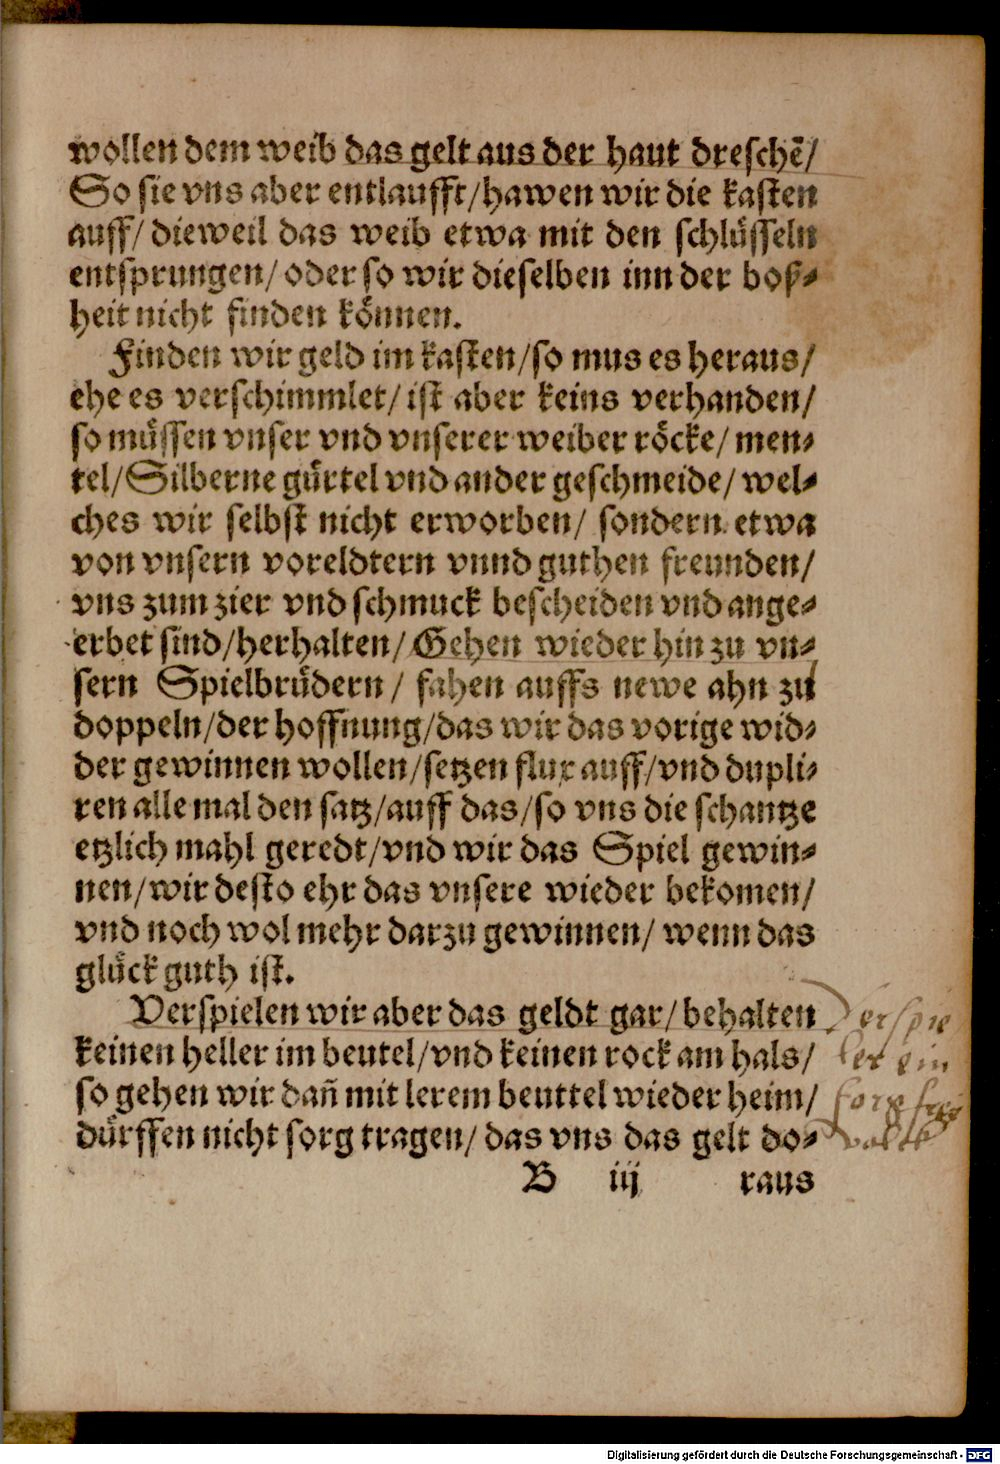 wollen dem weib das gelt aus der haut dreschē/
So sie vns aber entlaufft/hawen wir die kasten
auff/ dieweil das weib etwa mit den schlüsseln
entsprungen/ oder so wir dieselben inn der bos-
heit nicht finden können.
Finden wir geld im kasten/so mus es heraus/
ehe es verschimmlet/ ist aber keins verhanden/
so müssen vnser vnd vnserer weiber röcke/ men-
tel/Silberne gürtel vnd ander geschmeide/ wel-
ches wir selbst nicht erworben/ sondern etwa
von vnsern voreldtern vnnd guthen freunden/
vns zum zier vnd schmuck bescheiden vnd ange-
erbet sind/herhalten/Gehen wieder hin zu vn-
sern Spielbrüdern/ fahen auffs newe ahn zu
doppeln/der hoffnung/das wir das vorige wid-
der gewinnen wollen/setzen flux auff/vnd dupli-
ren alle mal den satz/auff das/so vns die schantze
etzlich mahl geredt/vnd wir das Spiel gewin-
nen/wir desto ehr das vnsere wieder bekomen/
vnd noch wol mehr darzu gewinnen/ wenn das
glück guth ist.
Verspielen wir aber das geldt gar/behalten
keinen heller im beutel/vnd keinen rock am hals/
so gehen wir dañ mit lerem beuttel wieder heim/
dürffen nicht sorg tragen/ das vns das gelt do-
B iij raus
Verspie
ler ein
Digitalisierung gefördert durch die Deutsche Forschungsgemeinschaft - DFG